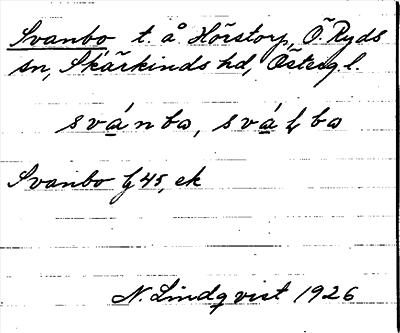 Svanbo t. å. Hörstorp, Ö Ryds
sn, Skärkinds hd, Österg. l.
svánbo, svá bo
Svanbo 45, ek
N. Lindqvist 1926